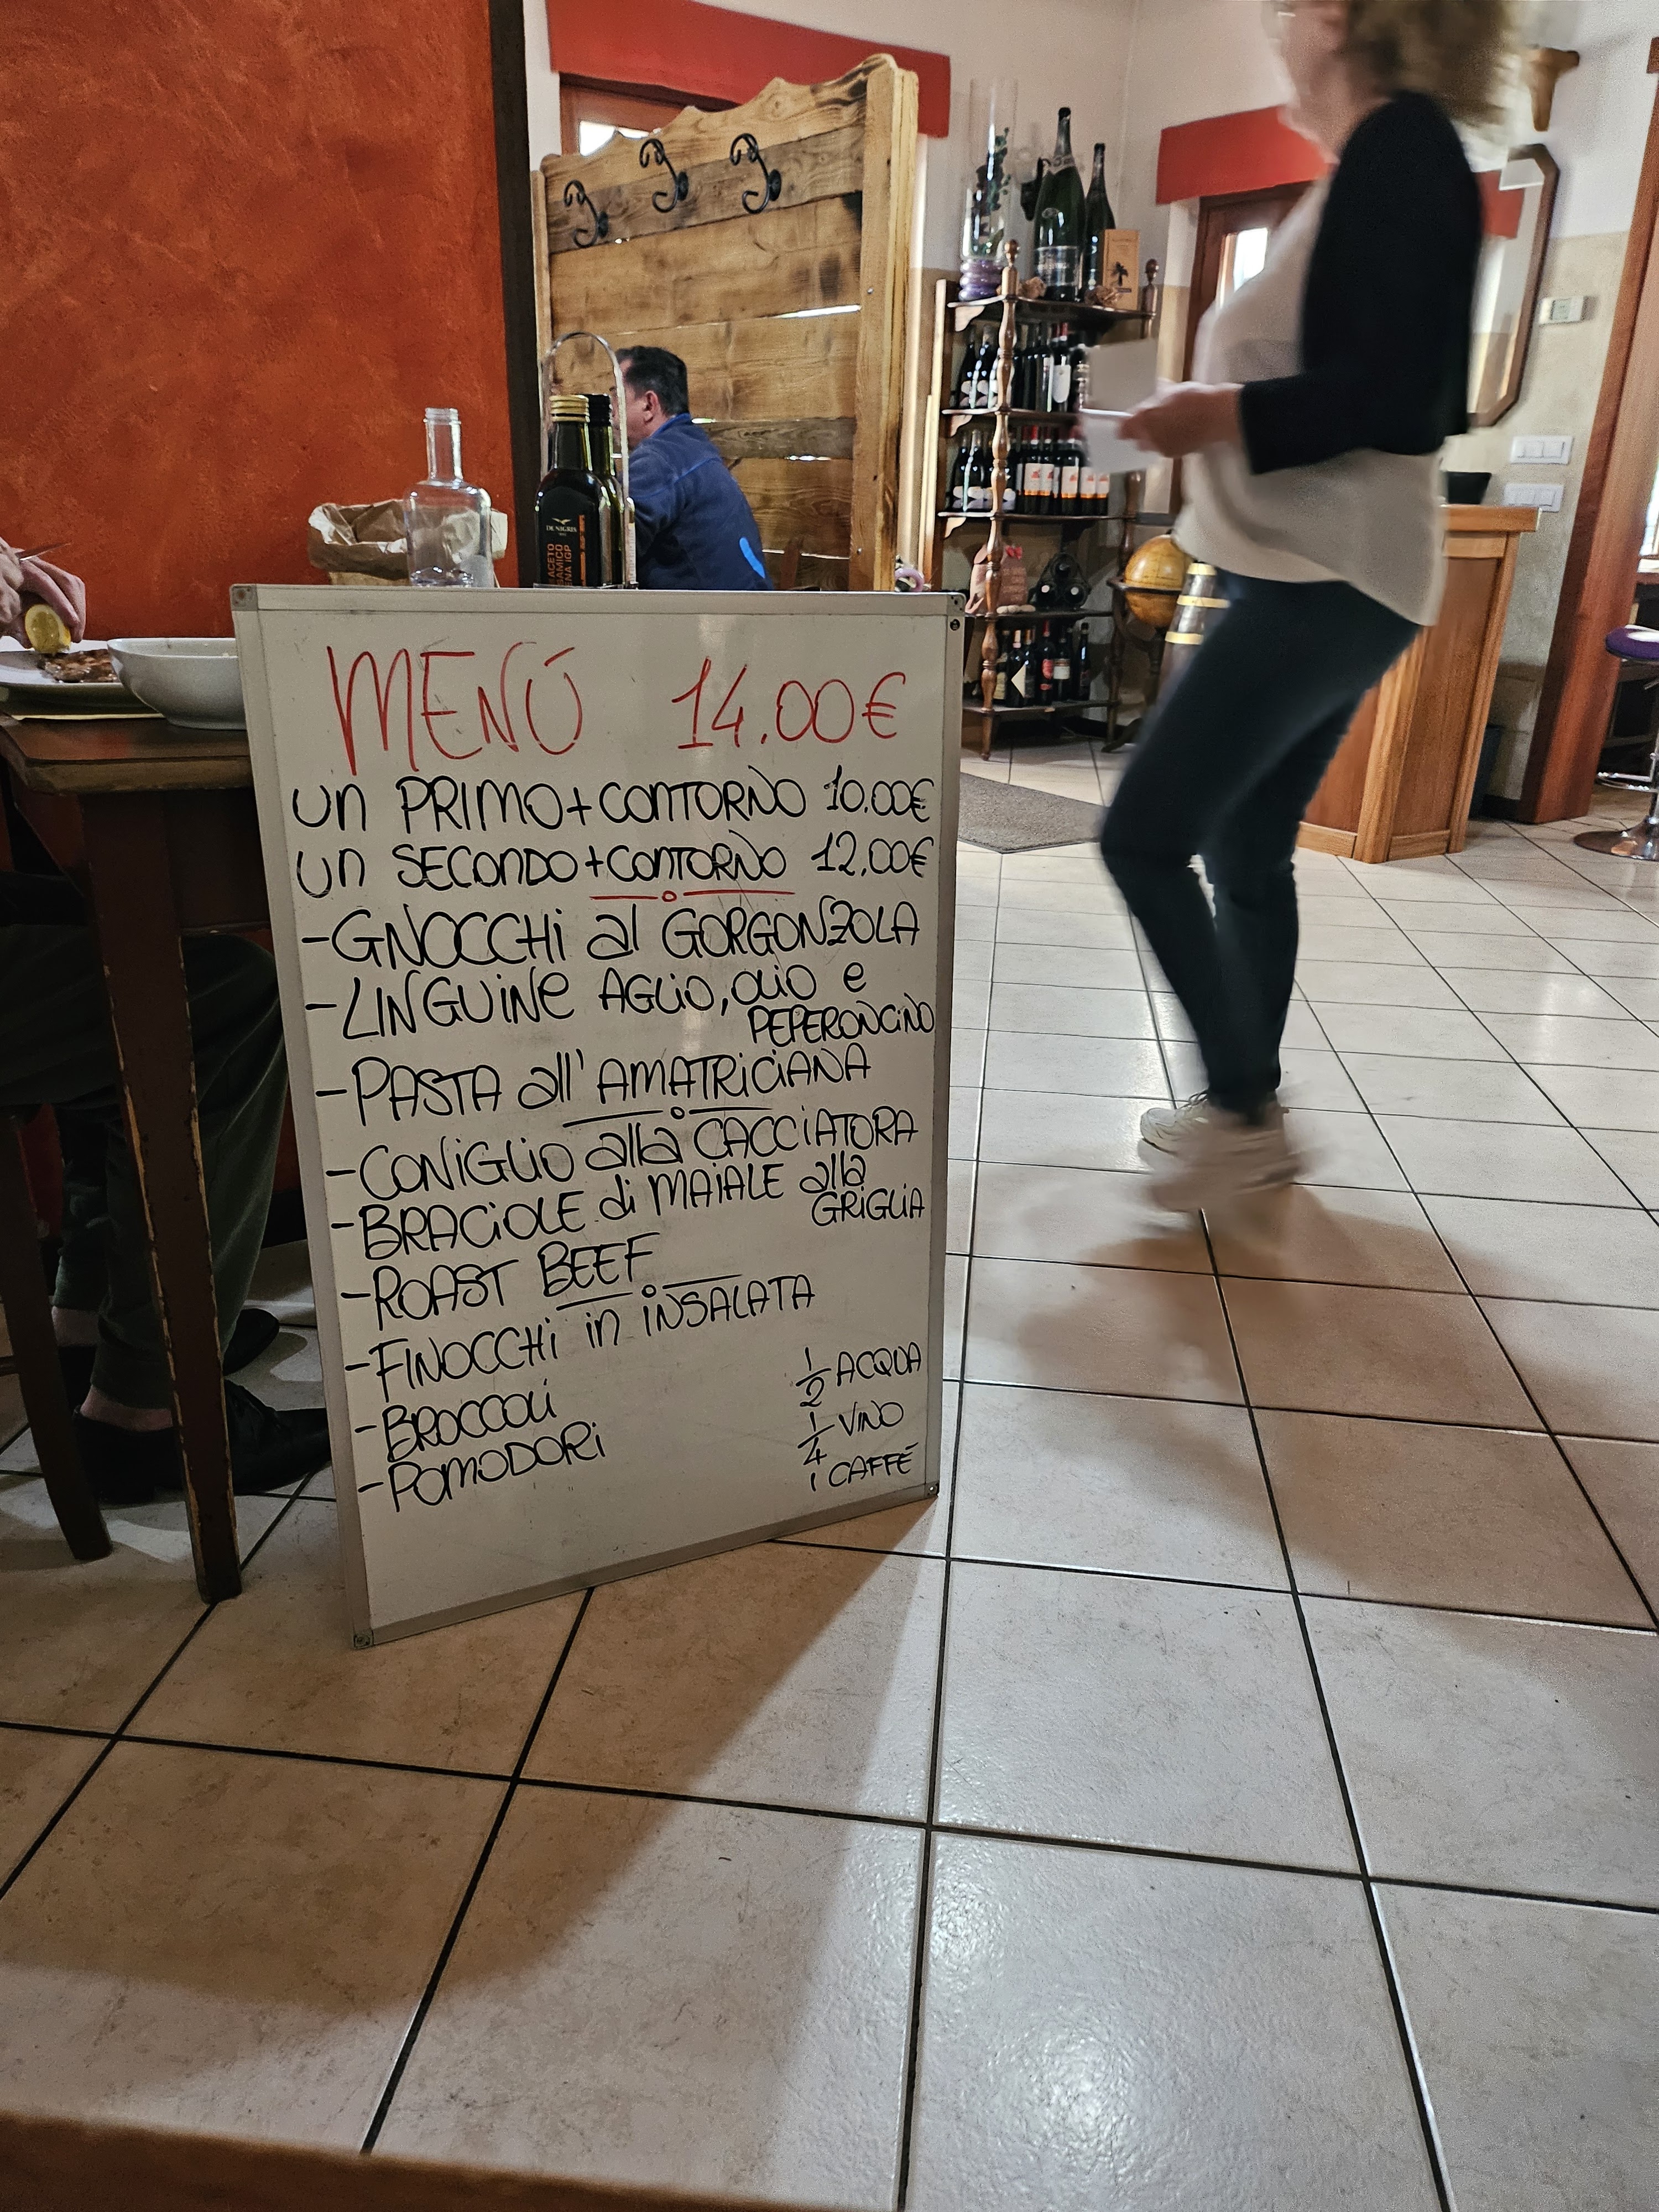 DE NIGRIS
ACETO
BALSAMICO
MODENA IGP
MENÚ 14.00€
Un PRIMO+CONTORNO 10.00€
Un SECONDO+CONTORNO 12.00€
-GNOCCHi al GORGONZOLA
-LINGUiNe AGLiO, OLiO e
PEPERONCiNO
-PASTA all' AMATRiCiANA
-CONiGLiO alla CACCiATORA
-BRACiOLE di MAiALE alla
GRiGLiA
-ROAST BEEF
-FINOCCHi in iNSALATA
-BROCCOLi
-POMODORi
1/2 ACQUA
1/4 ViNO
1 CAFFÉ